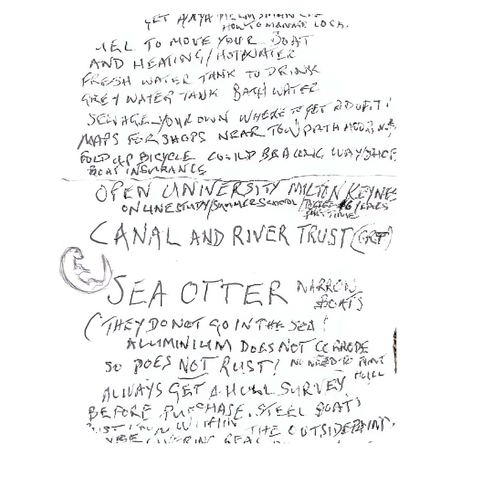 GET A RYA HELMSMAN
HOW TO MANAGE LOCK.
TO MOVE YOUR BOAT
AND HEATING/HOTWATER
FRESH WATER TANK TO DRINK
GREY WATER TANK BATH WATER
SEWAGE YOUR OWN WHERE TO GET
MAPS FOR SHOPS NEAR TOWPATH MOORINGS
FOLD UP BICYCLE COULD BE A LONG WAY SHOP
BOAT INSURANCE
OPEN UNIVERSITY MILTON KEYNES
ONLINE STUDY/SUMMER SCHOOL/ 6 YEARS
PART TIME
CANAL AND RIVER TRUST (CRT)
SEA OTTER NARROW
BOATS
(THEY DO NOT GO IN THE SEA!
ALUMINIUM DOES NOT CORRODE
SO DOES NOT RUST! NO NEED TO PAINT
HULL
ALWAYS GET A HULL SURVEY
BEFORE PURCHASE. STEEL BOATS
RUST FROM WITHIN THE OUTSIDE PAINT.